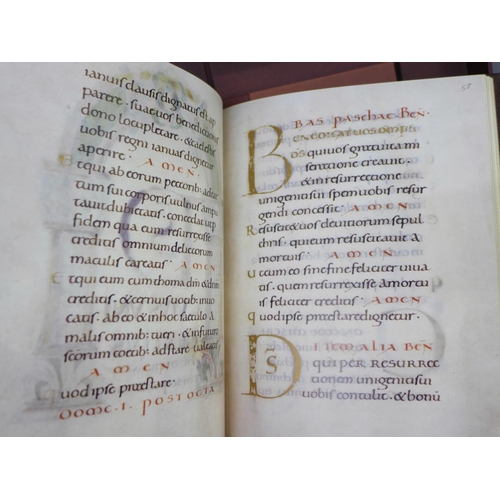 ianuis clausis dignatus est ap
parere. suae uos benedictionis
dono locupletare. & caelestis
uobis regni ianuas dignetur
aperire. AMEN
Et qui ab eorum pectorib: adtac
tum sui corporis uulnus ampu
tauit dubietatis. concedat ut per
fidem qua eum resurrexisse
creditis omnium delictorum
maculis careatis. AMEN
Et qui eum cum thoma dm & dnm
creditis. & cernuis uocib: inuo
catis. ab eo & in hoc saeculo a
malis omnib: tueri. & in futuro
scorum coetib: adstare ualeatis.
AMEN
quod ipse praestare.
DOME. I. POST OCTA
58
BAS PASCHAE BEN.
BENEDICAT UOS OMPS
DS qui uos gratuita mi
seratione creauit.
& in resurrectione
unigeniti sui spem uobis resur
gendi concessit. AMEN
Resuscitet uos de uitiorum sepul
chris. qui eum resuscitauit a
mortuis. AMEN
Ut cum eo sine fine feliciter uiua
tis. quem resurrexisse a mortu
is feliciter creditis. AMEN
quod ipse praestare dignetur.
ITEM ALIA BEN
DS QUI PER RESURREC
tionem unigeniti sui
uobis contulit. & bonu